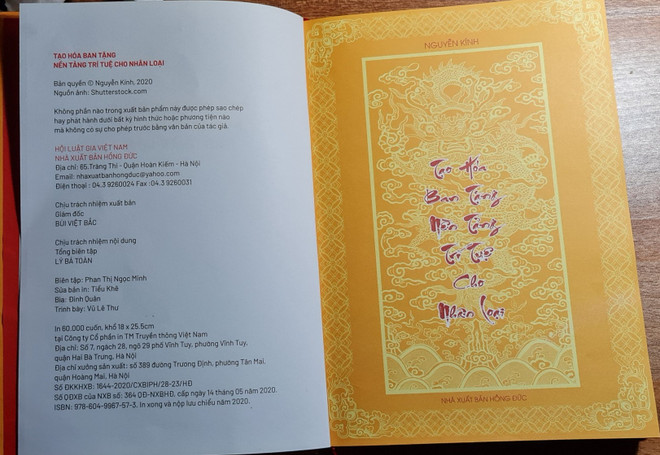 TẠO HÓA BAN TẶNG
NỀN TẢNG TRÍ TUỆ CHO NHÂN LOẠI
Bản quyền © Nguyễn Kính, 2020
Nguồn ảnh: Shutterstock.com
Không phần nào trong xuất bản phẩm này được phép sao chép
hay phát hành dưới bất kỳ hình thức hoặc phương tiện nào
mà không có sự cho phép trước bằng văn bản của tác giả.
HỘI LUẬT GIA VIỆT NAM
NHÀ XUẤT BẢN HỒNG ĐỨC
Địa chỉ: 65.Tràng Thi - Quận Hoàn Kiếm - Hà Nội
Email: nhaxuatbanhongduc@yahoo.com
Điện thoại : 04.3 9260024 Fax :04.3 9260031
Chịu trách nhiệm xuất bản
Giám đốc
BÙI VIỆT BẮC
Chịu trách nhiệm nội dung
Tổng biên tập
LÝ BÁ TOÀN
Biên tập: Phan Thị Ngọc Minh
Sửa bản in: Tiểu Khê
Bìa: Đình Quân
Trình bày: Vũ Lê Thư
In 60.000 cuốn, khổ 18 x 25.5cm
tại Công ty Cổ phần in TM Truyền thông Việt Nam
Địa chỉ: Số 7, ngách 28, ngõ 29 phố Vĩnh Tuy, phường Vĩnh Tuy,
quận Hai Bà Trưng, Hà Nội
Địa chỉ xưởng sản xuất: số 389 đường Trương Định, phường Tân Mai,
quận Hoàng Mai, Hà Nội
Số ĐKKHXB: 1644-2020/CXBIPH/28-23/HĐ
Số QĐXB của NXB số: 364 QĐ-NXBHĐ, cấp ngày 14 tháng 05 năm 2020.
ISBN: 978-604-9967-57-3. In xong và nộp lưu chiểu năm 2020.
NGUYỄN KÍNH
Tạo Hóa
Ban Tặng
Nền Tảng
Trí Tuệ
Cho
Nhân Loại
NHÀ XUẤT BẢN HỒNG ĐỨC